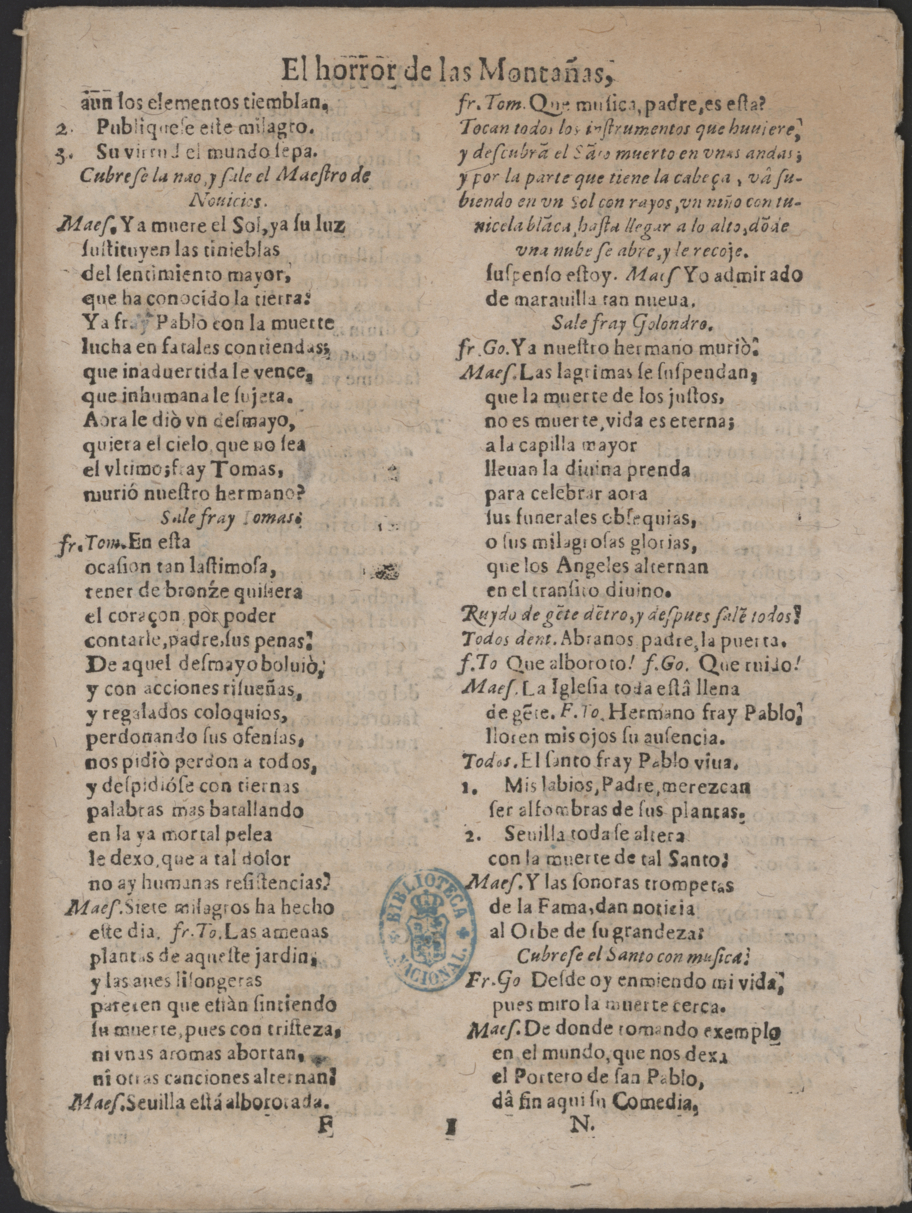 El horror de las Montañas,
aun los elementos tiemblan.
2. Publiquese este milagro.
3. Su virtud el mundo sepa.
Cubrese la nao, y sale el Maestro de
Nouicios.
Maes. Ya muere el Sol, ya su luz
sustituyen las tinieblas
del sentimiento mayor,
que ha conocido la tierra:
Ya fray Pablo con la muerte
lucha en fatales contiendas;
que inaduertida le vence,
que inhumana le sujeta.
Aora le diò vn desmayo,
quiera el cielo, que no sea
el vltimo; fray Tomas,
murió nuestro hermano?
Sale fray Tomas.
fr. Tom. En esta
ocasion tan lastimosa,
tener de bronze quisiera
el coraçon, por poder
contarle, padre, sus penas:
De aquel desmayo boluiò,
y con acciones risueñas,
y regalados coloquios,
perdonando sus ofensas,
nos pidiò perdon a todos,
y despidióse con tiernas
palabras mas batallando
en la ya mortal pelea
le dexo, que a tal dolor
no ay humanas resistencias?
Maes. Siete milagros ha hecho
este dia. fr. To. Las amenas
plantas de aqueste jardin,
y las aues lisongeras
parecen que estàn sintiendo
su muerte, pues con tristeza,
ni vnas aromas abortan,
ni otras canciones alternan.
Maes. Seuilla está alborotada.
fr. Tom. Que musica, padre, es esta?
Tocan todos los instrumentos que huuiere,
y descubrã el Sãto muerto en vnas andas;
y por la parte que tiene la cabeça, vâ su-
biendo en vn Sol con rayos, vn niño con tu-
nicela blãca, hasta llegar a lo alto, dõde
vna nube se abre, y le recoje.
suspenso estoy. Maes Yo admirado
de marauilla tan nueua.
Sale fray Golondro.
fr. Go. Ya nuestro hermano muriò.
Maes. Las lagrimas se suspendan,
que la muerte de los justos,
no es muerte, vida es eterna;
a la capilla mayor
lleuan la diuina prenda
para celebrar aora
sus funerales obsequias,
o sus milagrosas glorias,
que los Angeles alternan
en el transito diuino.
Ruydo de gẽte dẽtro, y despues salẽ todos.
Todos dent. Abranos padre, la puerta.
f. To Que alboroto! f. Go. Que ruido!
Maes. La Iglesia toda estâ llena
de gẽte. F. To. Hermano fray Pablo,
lloren mis ojos su ausencia.
Todos. El santo fray Pablo viua.
1. Mis labios, Padre, merezcan
ser alfombras de sus plantas.
2. Seuilla toda se altera
con la muerte de tal Santo.
Maes. Y las sonoras trompetas
de la Fama, dan noticia
al Orbe de su grandeza:
Cubrese el Santo con musica.
Fr. Go Desde oy enmiendo mi vida,
pues miro la muerte cerca.
Maes. De donde tomando exemplo
en el mundo, que nos dexa
el Portero de san Pablo,
dâ fin aqui su Comedia,
F I N.
BIBLIOTECA NACIONAL.